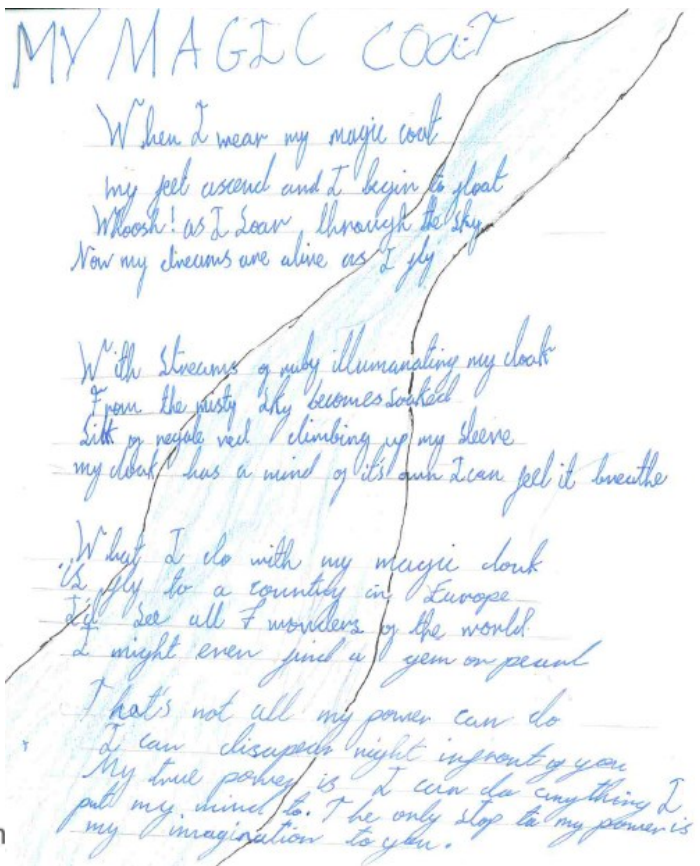 MY MAGIC COAT
When I wear my magic coat
my feet ascend and I begin to float
Whoosh! as I soar through the sky
Now my dreams are alive as I fly
With streams of ruby illumanating my cloak
From the musty sky becomes soaked
Silk or regale red climbing up my sleeve
my cloak has a mind of it's own I can feel it breathe
What I do with my magic cloak
is fly to a country in Europe
I'd see all 7 wonders of the world
I might even find a gem or pearl
That's not all my power can do
I can disapear right infront of you
My true power is I can do anything I
put my mind to. The only stop to my power is
my imagination to you.